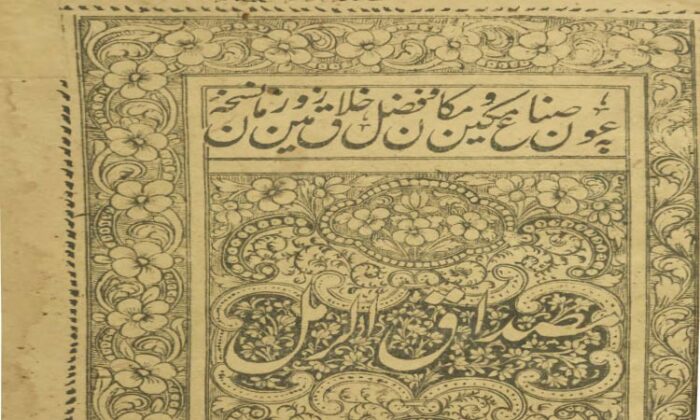 بعون صناع مکین و مکان فضل خلاق زمین و زمان نسخہ
مصداق الرمل